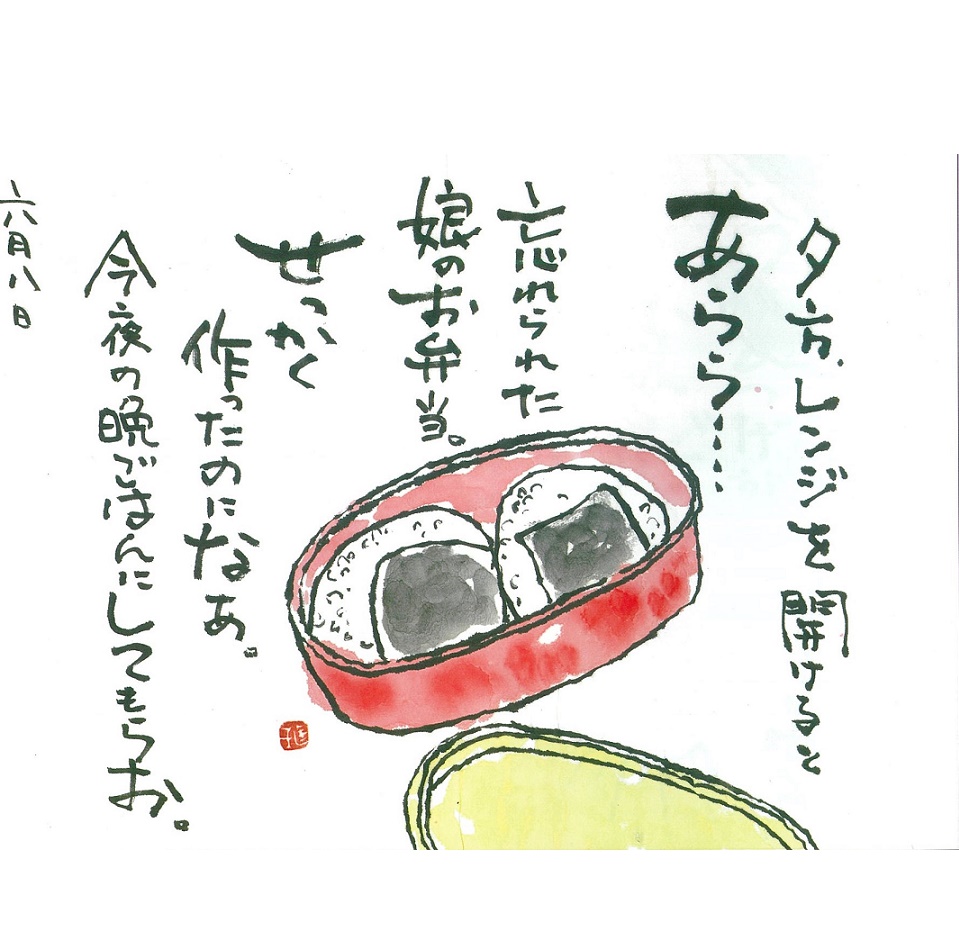 夕方、レンジを開けると
あらら……
忘れられた
娘のお弁当。
せっかく
作ったのになあ。
今夜の晩ごはんにしてもらお。
六月八日